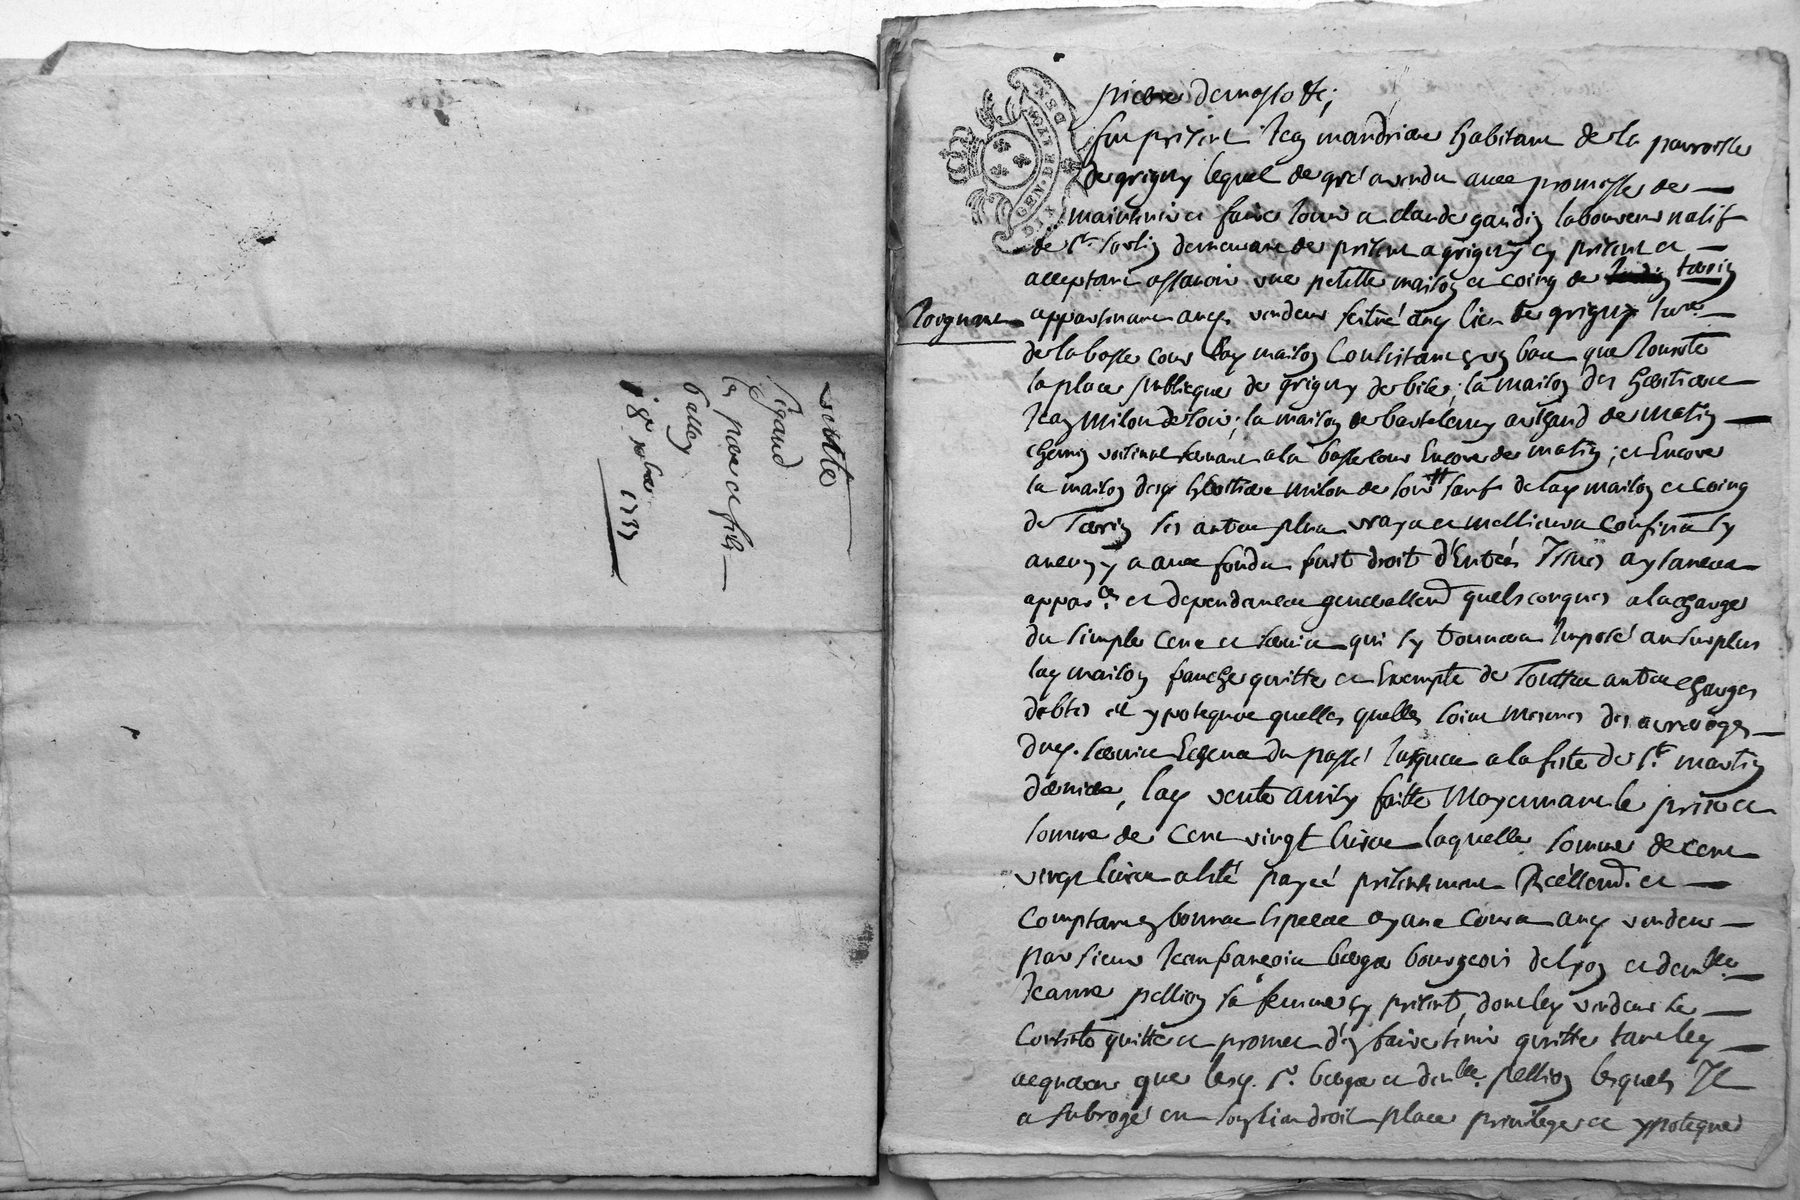 vente
pere et fils
1737
GEN. DE LYON
pierre
fut present Jean mandriae habitant de la parroisse
de grigny lequel de gré a vendu avec promesse de
maintenir et faire Jouir a claude gaudin laboureur natif
de St. Sorlin demeurant de present a grigny cy present et
acceptant assavoir une petitte maison et coing de tarin
appartenant audt. vendeur scitué audt. lieu de grigny
de la basse cour lad. maison Consistant en un bas que Jouste
la place publicque de grigny de bize, la maison des heritiers
Jean milon de soir; la maison de bartelemy de matin
chemin voisinal tenant a la basse cour Encore de matin; et Encore
la maison desd. heritiers milon de soir sauf de lad. maison et coing
de Tarin ses autres plus vrays et meillieurs confins sy
aucuns y a avec fonds fruit droit d'Entrée Issues aysances
appar.ces et dependances generallemt quelsconques a la charge
du simple cens et servis qui sy trouvera Imposé au surplus
lad. maison franche quitte et Exempte de Toutes autres charges
debtes et ypoteques quelles quelles soint mesmes des arrerages
dud. servis Echeus du passé Jusques a la feste de St. martin
dernier, lad. vente ainsy faitte Moyennant le prix et
somme de cent vingt livres laquelle somme de cent
vingt livres a esté payée presentement Réellemt. et
comptant en bonnes Especes ayant cours audt. vendeur
par sieur Jean françois berger bourgeois de lyon et demlle.
Jeanne pellion sa femme cy present, dont led. vendeur se
contente quitte et promet d'en faire tenir quitte tant led.
acquereur que lesd. Sr. berger et demlle. pellion lesquels Il
a subrogé en son lieu droit place privilege et ypoteque